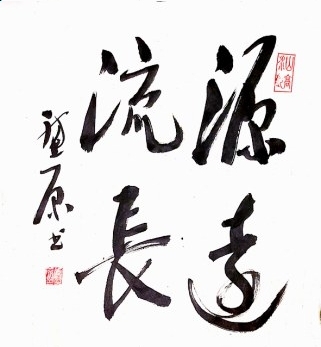 源遠
流長
原书